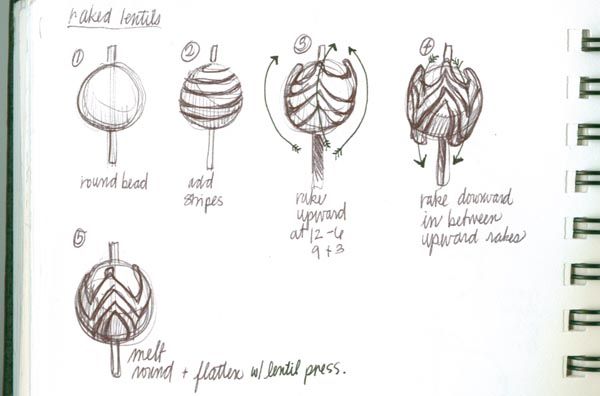 raked lentils
①
round bead
②
add
stripes
③
rake
upward
at 12-6
9 + 3
④
rake downward
in between
upward rakes
⑤
melt
round + flatten w/ lentil press.